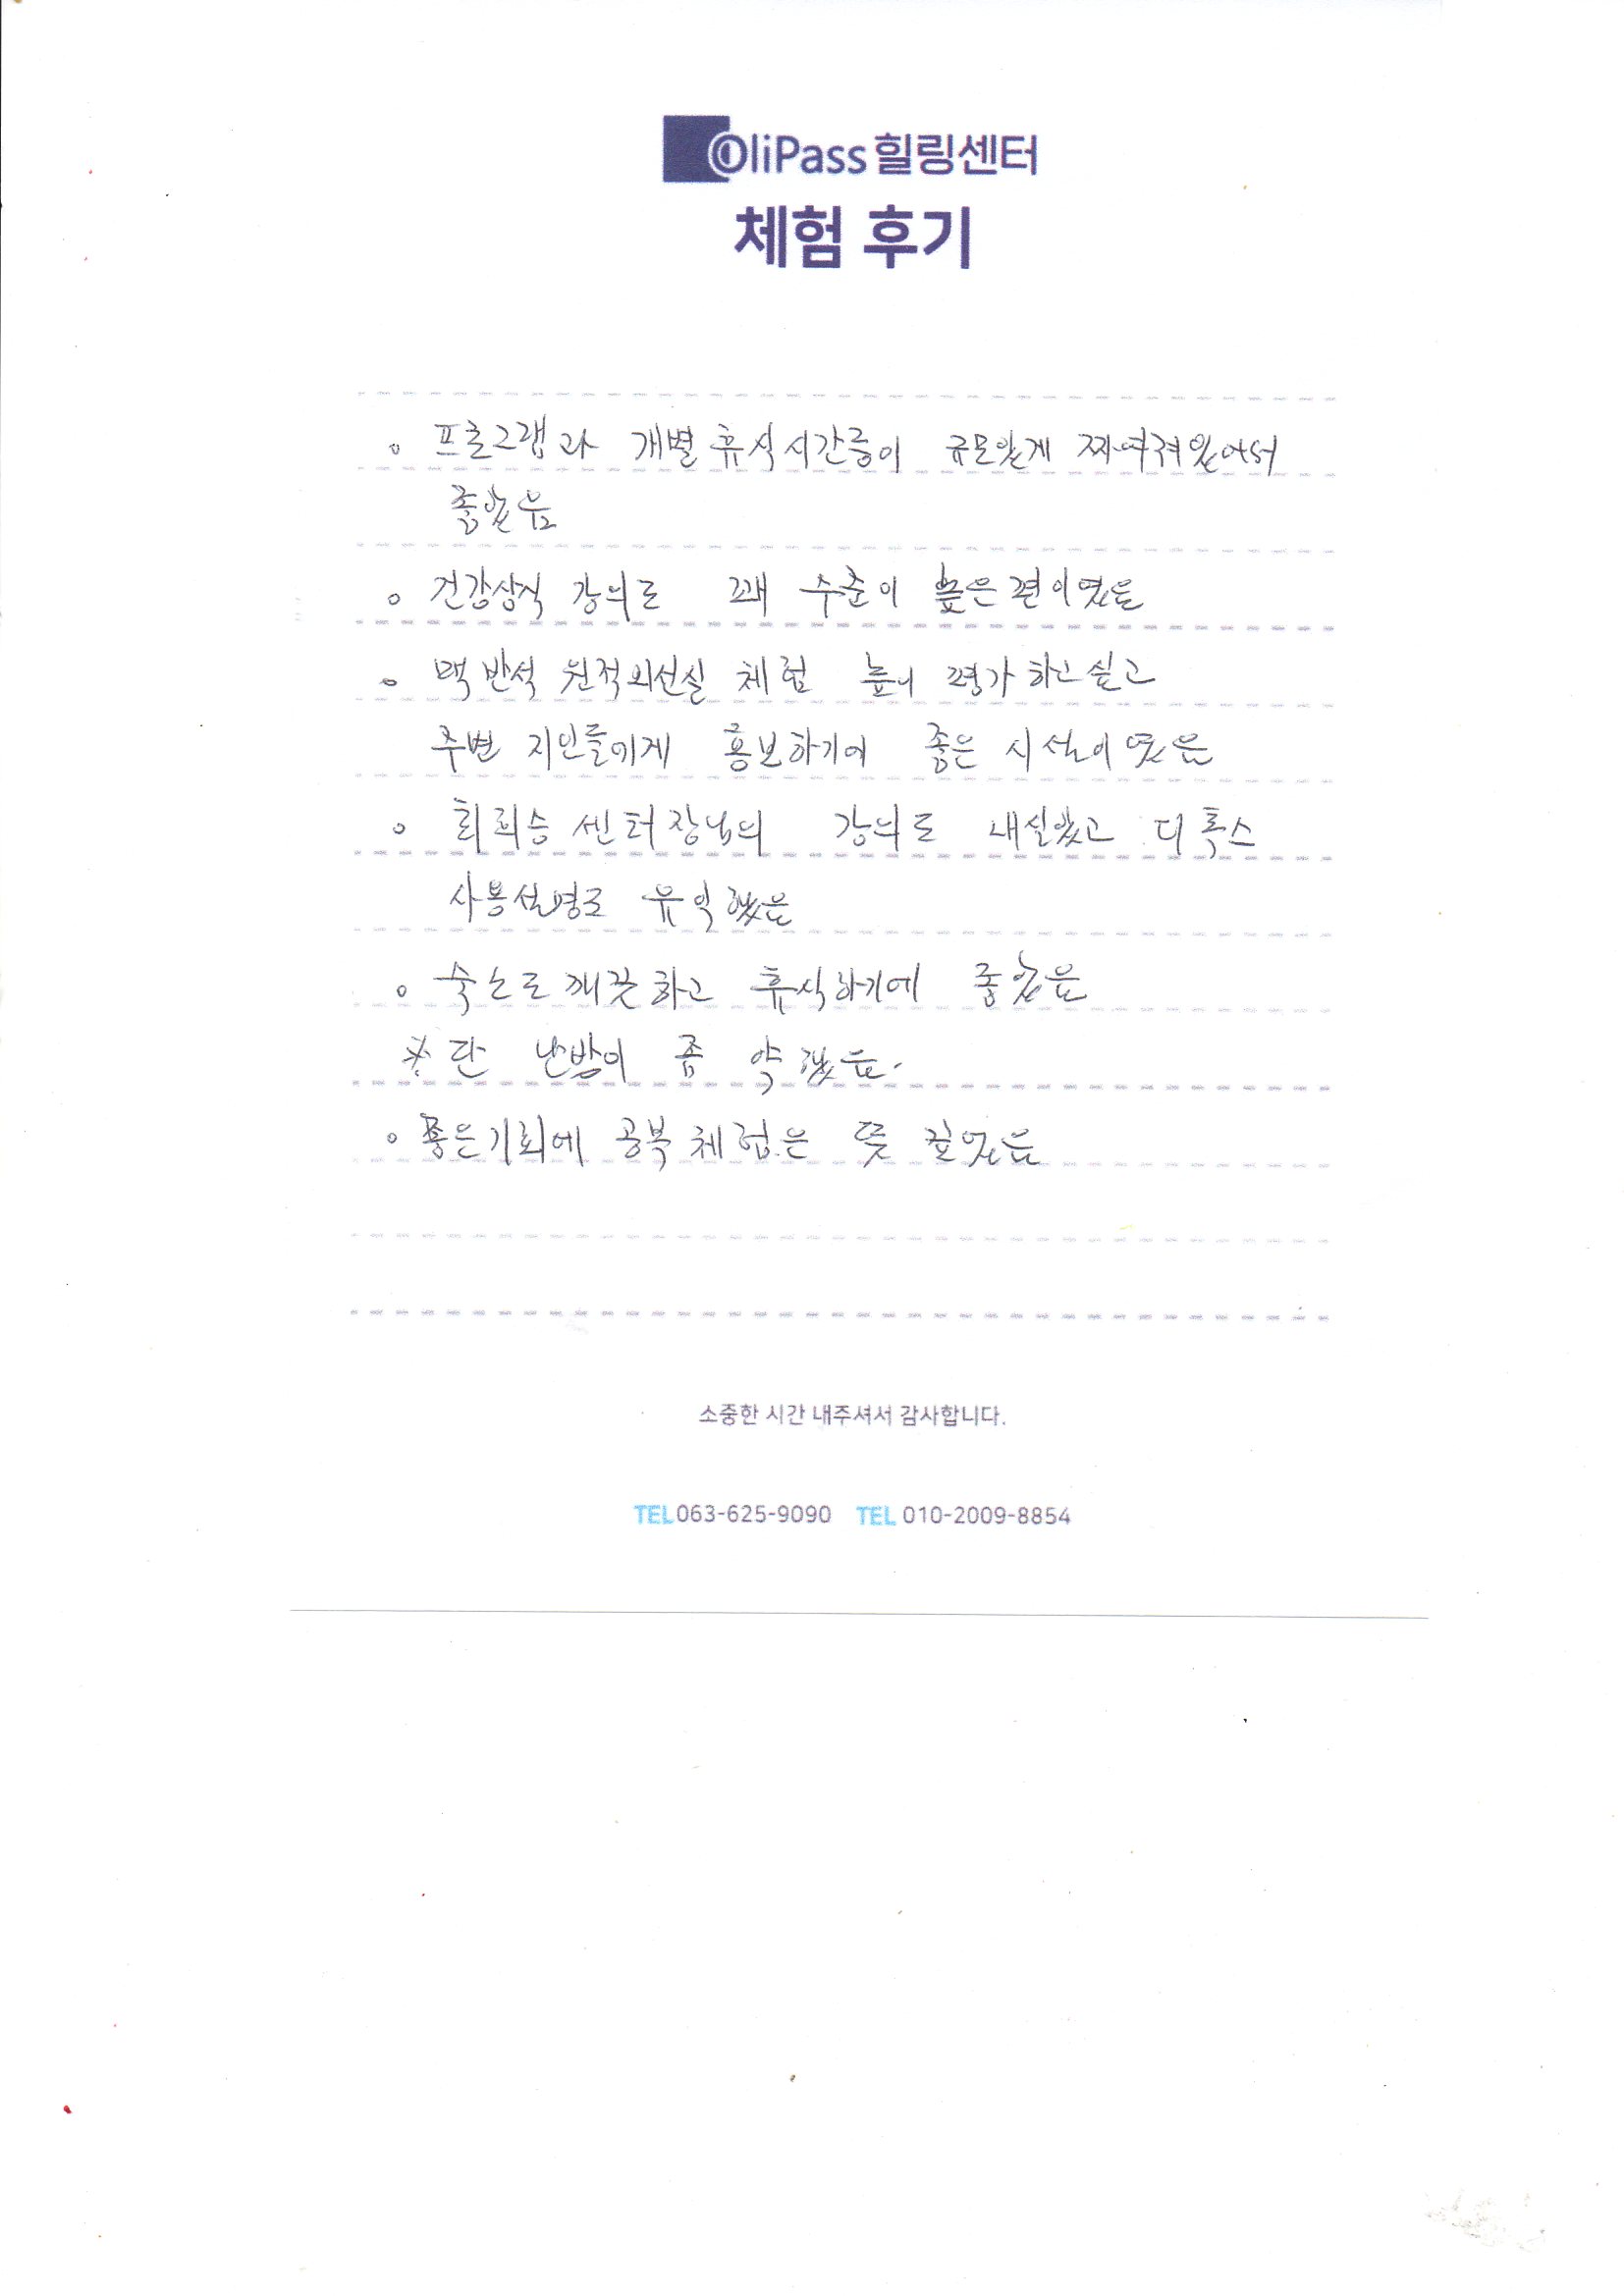 OliPass 힐링센터
체험 후기
◦ 프로그램과 개별휴식시간등이 규모있게 짜여져있어서
좋았음
◦ 건강상식 강의도 꽤 수준이 높은편이였음
◦ 맥반석 원적외선실 체험 높이 평가하고싶고
주변 지인들에게 홍보하기에 좋은 시설이였음
센터장님의 강의도 내실있고 디톡스
사용설명도 유익했음
◦ 숙소도 깨끗하고 휴식하기에 좋았음
※ 단 난방이 좀 약했음.
◦ 좋은기회에 공복체험은 뜻 깊었음
소중한 시간 내주셔서 감사합니다.
TEL 063-625-9090 TEL 010-2009-8854